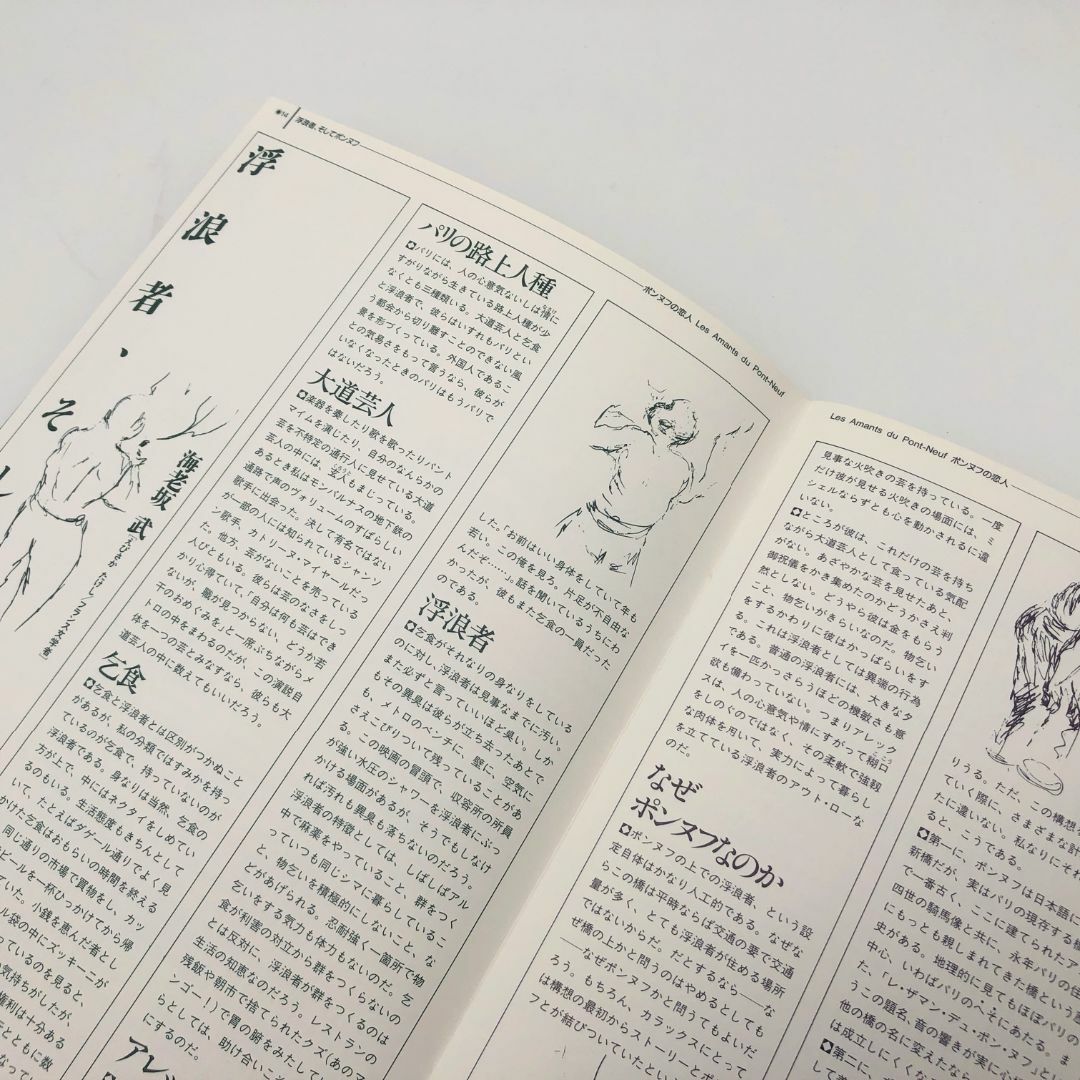 浮浪者、そしてポンヌフ
浮浪者、そし
海老坂 武
えびさか たけし フランス文学者
パリの路上人種
✪パリには、人の心意気ないしは情に
すがりながら生きている路上人種が少
なくとも三種類いる。大道芸人と乞食
と浮浪者で、彼らはいずれもパリとい
う都会から切り離すことのできない風
景を形づくっている。外国人であるこ
との気易さをもって言うなら、彼らが
いなくなったときのパリはもうパリで
はないだろう。
大道芸人
✪楽器を奏したり歌を歌ったりパント
マイムを演じたり、自分のなんらかの
芸を不特定の通行人に見せている大道
芸人の中には、玄人もまじっている。
あるとき私はモンパルナスの地下鉄の
通路で声のヴォリュームのすばらしい
歌手に出会った。決して有名ではない
が一部の人には知られているシャンソ
ン歌手、カトリーヌ・マイヤールだっ
た。他方、芸がないことを売っている
人びともいる。彼らは芸のなさをしっ
かり心得ていて「自分は何も芸はでき
ないが、職が見つからない、どうか若
干のおめぐみを」と一席ぶちながらメ
トロの中をまわるのだが、この演説自
体を一つの芸とみなすなら、彼らも大
道芸人の中に数えてもいいだろう。
乞食
✪乞食と浮浪者とは区別がつかぬこと
があるが、私の分類ではすみかを持っ
ているのが乞食で、持っていないのが
浮浪者である。身なりは当然、乞食の
方が上で、中にはネクタイをしめてい
るのもいる。生活態度もきちんとして
いて、たとえばダゲール通りでよく見
かけた乞食はおもらいの時間を終える
同じ通りの市場で買物をし、カッ
ビールを一杯ひっかけてから帰
ていた。小銭を恵んだ者とし
ル袋の中にズッキーニが
っているのを見ると、
気持ちがしたが、
権利は十分ある
とともに数
した。「お前はいい身体をしていて年も
若い。この俺を見ろ。片足が不自由な
んだぞ……」。話を聞いているうちにわ
かったが、彼もまた乞食の一員だった
のである。
浮浪者
✪乞食がそれなりの身なりをしている
のに対し、浮浪者は見事なまでに汚い。
また必ずと言っていいほど臭い。しか
もその異臭は彼らが立ち去ったあとで
も、メトロのベンチに、壁に、空気に
さえこびりついて残っていることがあ
る。この映画の冒頭で、収容所の所員
が強い水圧のシャワーを浮浪者にぶっ
かける場面があるが、そうでもしなけ
れば汚れも異臭も落ちないのだろう。
浮浪者の特徴としては、しばしばアル
中で麻薬をやっていること、群をつく
っていつも同じシマに暮らしているこ
と、物乞いを積極的にしないこと、な
どがあげられる。忍耐強く一箇所で物
乞いをする気力も体力もないのだ。乞
食が利害の対立から群をつくらないの
とは反対に、浮浪者が群をつくるのは
生活の知恵なのだろう。レストランの
残飯や朝市で捨てられたクズ(あのマ
ンゴー!)で胃の腑をみたしてい
らとしては、助け合いこそ
にするのだ。
アレ
ポンヌフの恋人 Les Amants du Pont-Neuf
Les Amants du Pont-Neuf ポンヌフの恋人
見事な火吹きの芸を持っている。一度
だけ彼が見せる火吹きの場面には、ミ
シェルならずとも心を動かされるに違
いない。
✪ところが彼は、これだけの芸を持ち
ながら大道芸人として食っている気配
がない。あざやかな芸を見せたあと、
御祝儀をかき集めたのかどうかさえ判
然としない。どうやら彼は金をもらう
こと、物乞いがきらいなのだ。物乞い
をするかわりに彼はかっぱらいをす
る。これは浮浪者としては異端の行為
である。普通の浮浪者には、大きなタ
イを一匹かっさらうほどの機敏さも意
欲も備わっていない。つまりアレック
スは、人の心意気や情にすがって糊口
をしのぐのではなく、その柔軟で強靱
な肉体を用いて、実力によって暮らし
を立てている浮浪者のアウト・ローな
のだ。
なぜ
ポンヌフなのか
✪ポンヌフの上での浮浪者、という設
定自体はかなり人工的である。なぜな
らこの橋は平時ならば交通の要で交通
量が多く、とても浮浪者が住める場所
ではないからだ。だとするなら――な
ぜ橋の上かと問うのはやめるとしても
――なぜポンヌフかと問うてもよいだ
ろう。もちろん、カラックスにとって
は構想の最初からストーリーとポ
フとが結びついていたとい
りうる。ただ、この構想
ていく際に、さまざまな計
たに違いない。私なりにそれ
ると、こうである。
✪第一に、ポンヌフは日本語に
新橋だが、実はパリの現存する橋
で一番古く、ここに建てられたア
四世の騎馬像と共に、永年パリの住
にもっとも親しまれてきた橋という
史がある。地理的に見てもほぼパリの
中心、いわばパリのへそにあたる。ま
た、「レ・ザマン・デュ・ポン・ヌフ」と
うこの題名、音の響きが実に心
他の橋の名に変えたなら
は成立しにくくな
✪第二に、